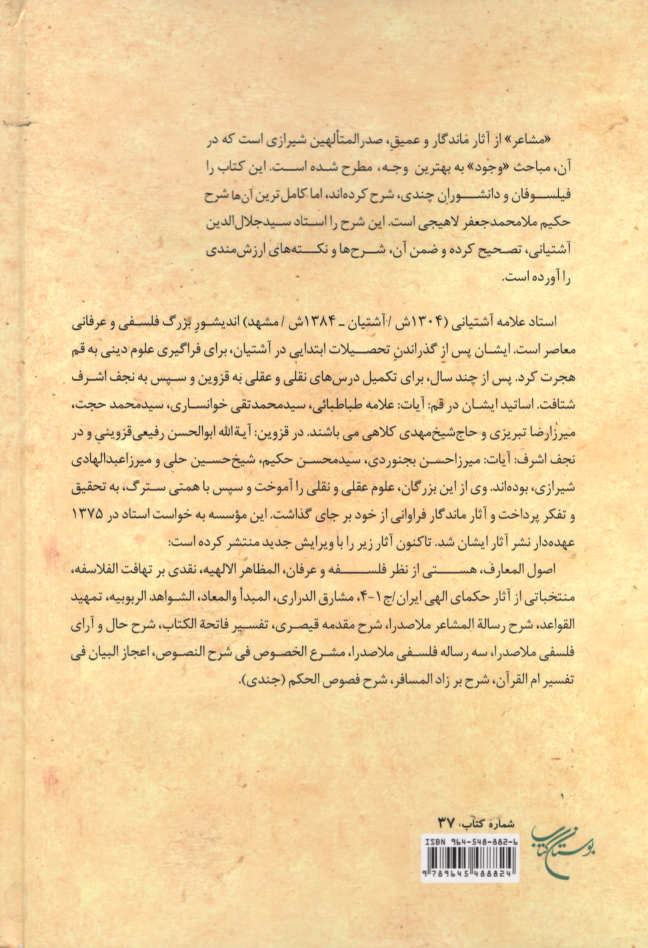 «مشاعر» از آثار ماندگار و عمیقِ، صدرالمتألهین شیرازی است که در
آن، مباحث «وجود» به بهترین وجه، مطرح شده است. این کتاب را
فیلسوفان و دانشوران چندی، شرح کرده‌اند، اما کامل‌ترین آن‌ها شرح
حکیم ملامحمدجعفر لاهیجی است. این شرح را استاد سیدجلال‌الدین
آشتیانی، تصحیح کرده و ضمن آن، شرح‌ها و نکته‌های ارزش‌مندی
را آورده است.
استاد علامه آشتیانی (۱۳۰۴ش /آشتیان ـ ۱۳۸۴ش / مشهد) اندیشورِ بزرگ فلسفی و عرفانی
معاصر است. ایشان پس از گذراندنِ تحصیلات ابتدایی در آشتیان، برای فراگیری علوم دینی به قم
هجرت کرد. پس از چند سال، برای تکمیل درس‌های نقلی و عقلی به قزوین و سپس به نجف اشرف
شتافت. اساتید ایشان در قم: آیات: علامه طباطبائی، سیدمحمدتقی خوانساری، سیدمحمد حجت،
میرزارضا تبریزی و حاج‌شیخ‌مهدی کلاهی می باشند. در قزوین: آیةالله ابوالحسن رفیعی‌قزوینی و در
نجف اشرف: آیات: میرزاحسن بجنوردی، سیدمحسن حکیم، شیخ‌حسین حلی و میرزاعبدالهادی
شیرازی، بوده‌اند. وی از این بزرگان، علوم عقلی و نقلی را آموخت و سپس با همتی سترگ، به تحقیق
و تفکر پرداخت و آثار ماندگار فراوانی از خود بر جای گذاشت. این مؤسسه به خواست استاد در ۱۳۷۵
عهده‌دار نشر آثار ایشان شد. تاکنون آثار زیر را با ویرایش جدید منتشر کرده است:
اصول المعارف، هستی از نظر فلسفه و عرفان، المظاهر الالهیه، نقدی بر تهافت الفلاسفه،
منتخباتی از آثار حکمای الهی ایران/ج۱-۴، مشارق الدراری، المبدأ والمعاد، الشواهد الربوبیه، تمهید
القواعد، شرح رسالة المشاعر ملاصدرا، شرح مقدمه قیصری، تفسیر فاتحة الکتاب، شرح حال و آرای
فلسفی ملاصدرا، سه رساله فلسفی ملاصدرا، مشرع الخصوص فی شرح النصوص، اعجاز البیان فی
تفسیر ام القرآن، شرح بر زاد المسافر، شرح فصوص الحکم (جندی).
شماره کتاب: ۳۷
بوستان کتاب
ISBN 964-548-882-6
9 789645 488824